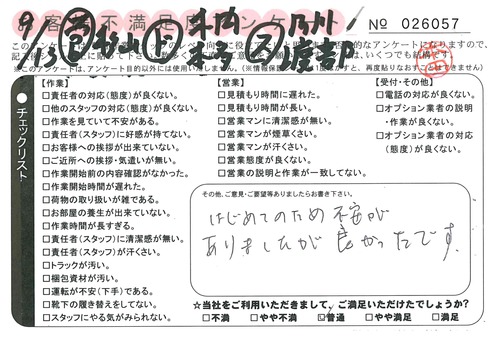 お客様不満足度アンケート
№ 026057
9/13
チェックリスト
【作業】
□責任者の対応(態度)が良くない。
□他のスタッフの対応(態度)が良くない。
□作業を見ていて不安がある。
□責任者(スタッフ)に好感が持てない。
□お客様への挨拶が出来ていない。
□ご近所への挨拶・気遣いが無い。
□作業開始前の内容確認がなかった。
□作業開始時間が遅れた。
□荷物の取り扱いが雑である。
□お部屋の養生が出来ていない。
□作業時間が長すぎる。
□責任者(スタッフ)に清潔感が無い。
□責任者(スタッフ)が汗くさい。
□トラックが汚い。
□梱包資材が汚い。
□運転が不安(下手)である。
□靴下の履き替えをしてない。
□スタッフにやる気がみられない。
【営業】
□見積もり時間に遅れた。
□見積もり時間が長い。
□営業マンに清潔感が無い。
□営業マンが煙草くさい。
□営業マンが汗くさい。
□営業態度が良くない。
□営業の説明と作業が一致してない。
【受付・その他】
□電話の対応が良くない。
□オプション業者の説明
・作業が良くない。
□オプション業者の対応
(態度)が良くない。
その他、ご意見・ご要望等ありましたらお書き下さい。
はじめてのため不安が
ありましたが良かったです。
☆当社をご利用いただきまして、ご満足いただけたでしょうか?
□不満 □やや不満 ☑普通 □やや満足 □満足